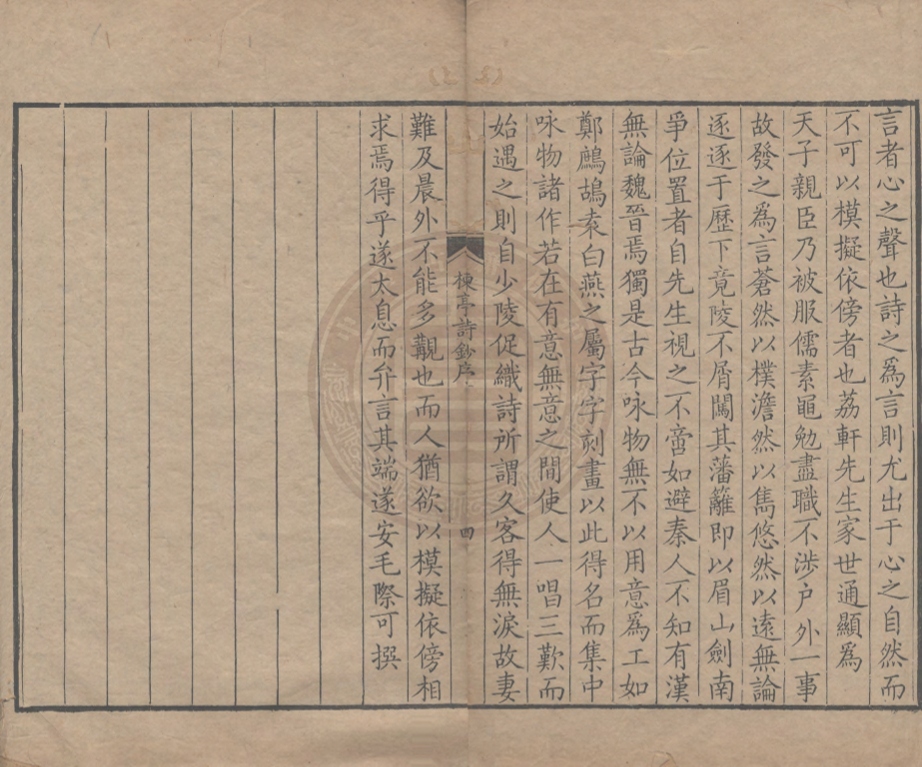 言者心之聲也詩之爲言則尤出于心之自然而
不可以模擬依傍者也荔軒先生家世通顯爲
天子親臣乃被服儒素黽勉盡職不涉户外一事
故發之爲言蒼然以樸澹然以雋悠然以遠無論
逐逐于歷下竟陵不屑闖其藩籬即以眉山劍南
爭位置者自先生視之不啻如避秦人不知有漢
無論魏晉焉獨是古今咏物無不以用意爲工如
鄭鷓鴣袁白燕之屬字字刻畫以此得名而集中
咏物諸作若在有意無意之間使人一唱三歎而
始遇之則自少陵促織詩所謂久客得無淚故妻
楝亭詩鈔序
四
難及晨外不能多覯也而人猶欲以模擬依傍相
求焉得乎遂太息而弁言其端遂安毛際可撰